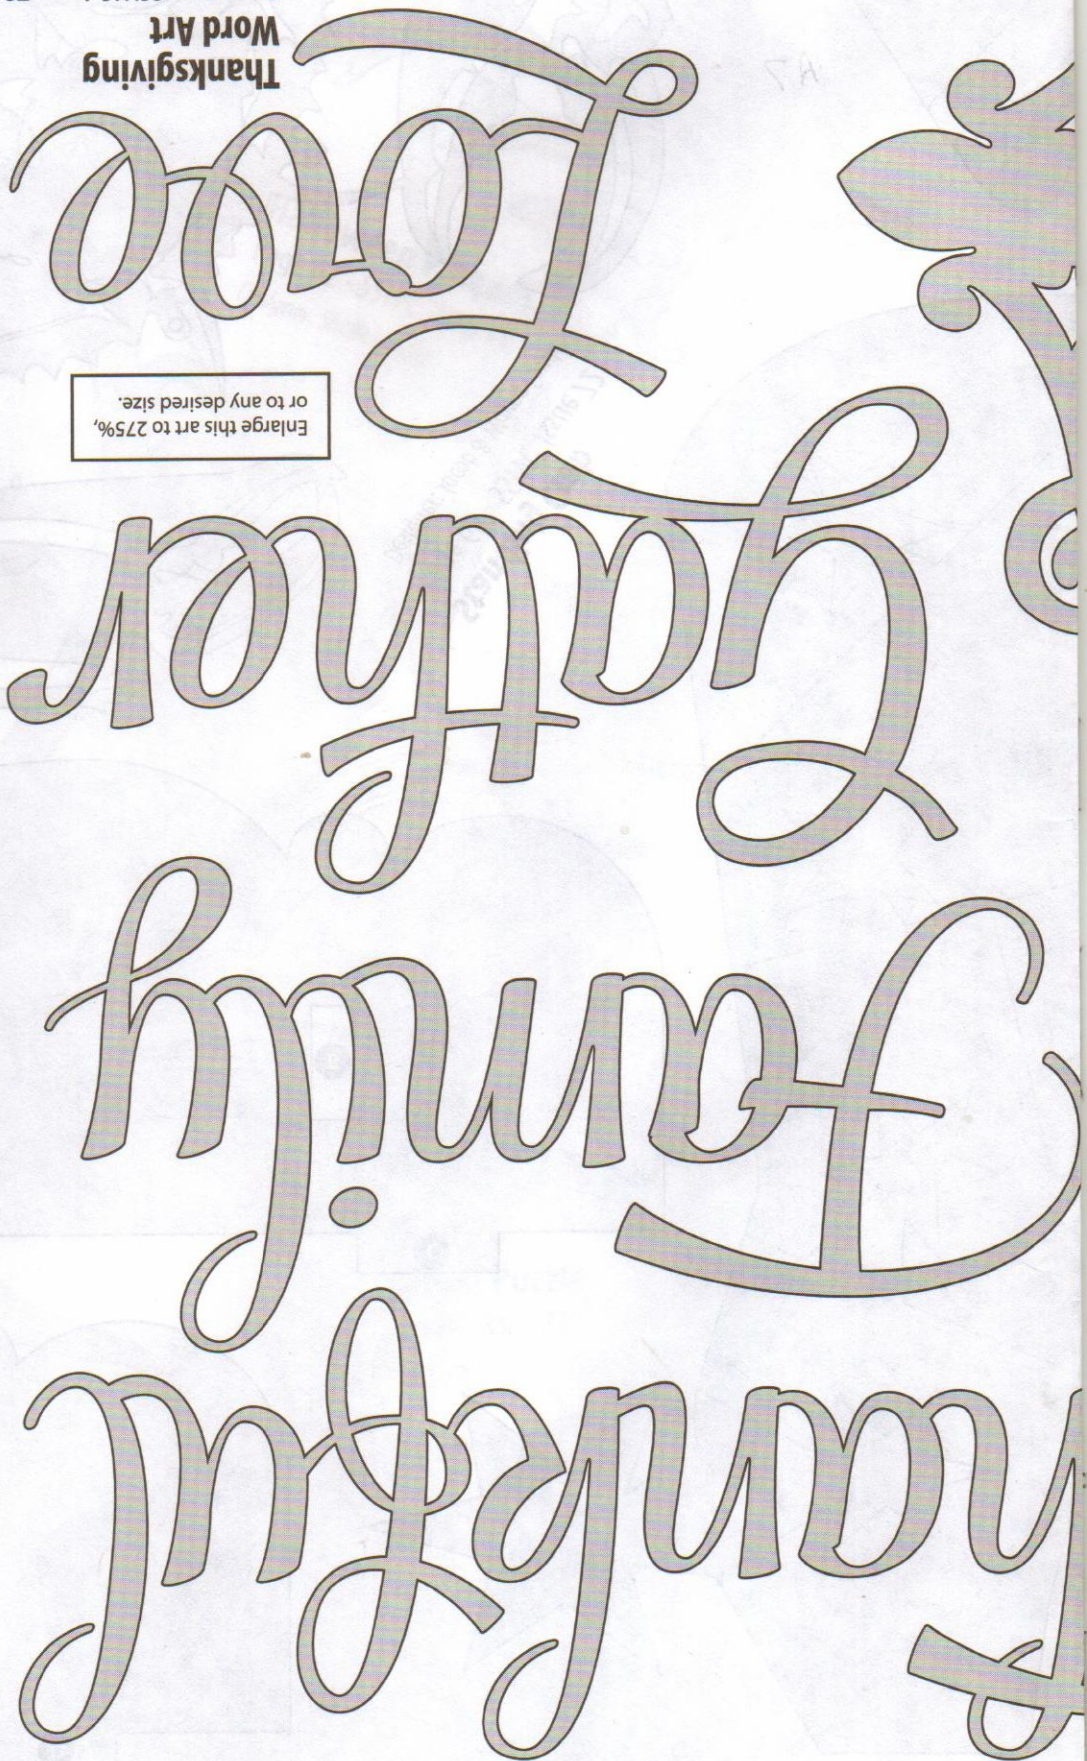 hankful
Family
Gather
Enlarge this art to 275%,
or to any desired size.
Love
Thanksgiving
Word Art